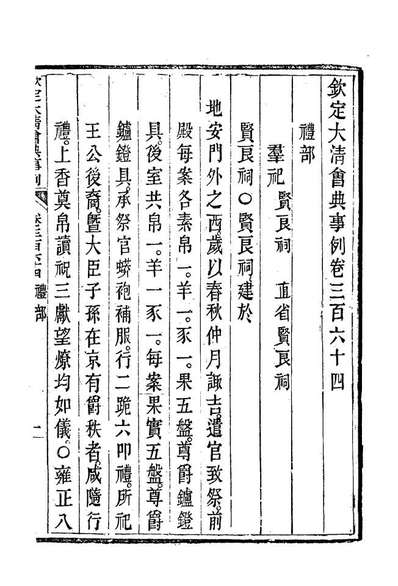 欽定大清會典事例卷三百六十四
禮部
羣祀 賢良祠 直省賢良祠
賢良祠○賢良祠建於
地安門外之西歲以春秋仲月諏吉遣官致祭前
殿每案各素帛一。豕一。果五盤尊爵鑪鐙
具。後室共帛一。羊一豕一。每案果實五盤。尊爵
鑪鐙具。承祭官蟒袍補服。行二跪六叩禮。所祀
王公後裔。曁大臣子孫在京有爵秩者。咸隨行
禮。上香奠帛讀祝三獻望燎均如儀。○雍正八
欽定大清會典事例 卷三百六十四 禮部 一